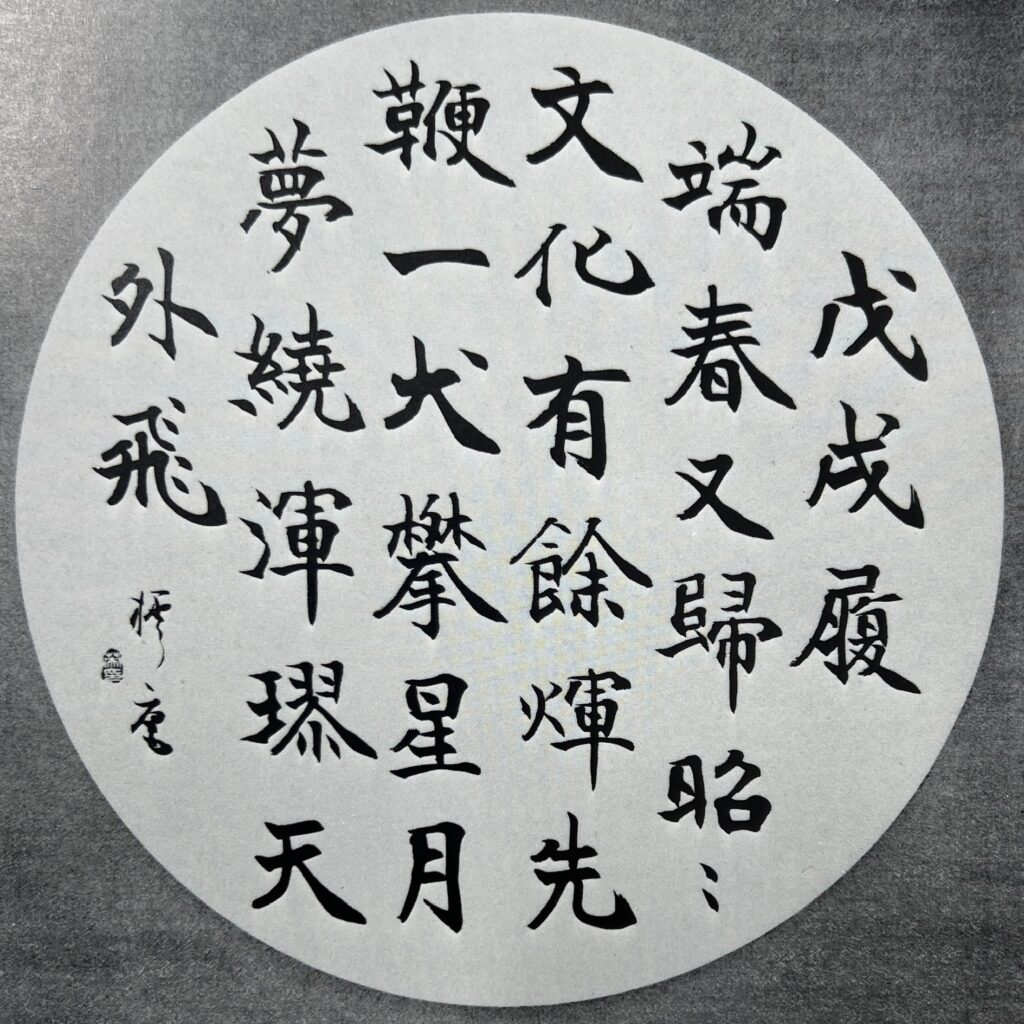 戊戌履
端春又歸昭〻
文化有餘煇先
鞭一犬攀星月
夢繞渾璆天
外飛